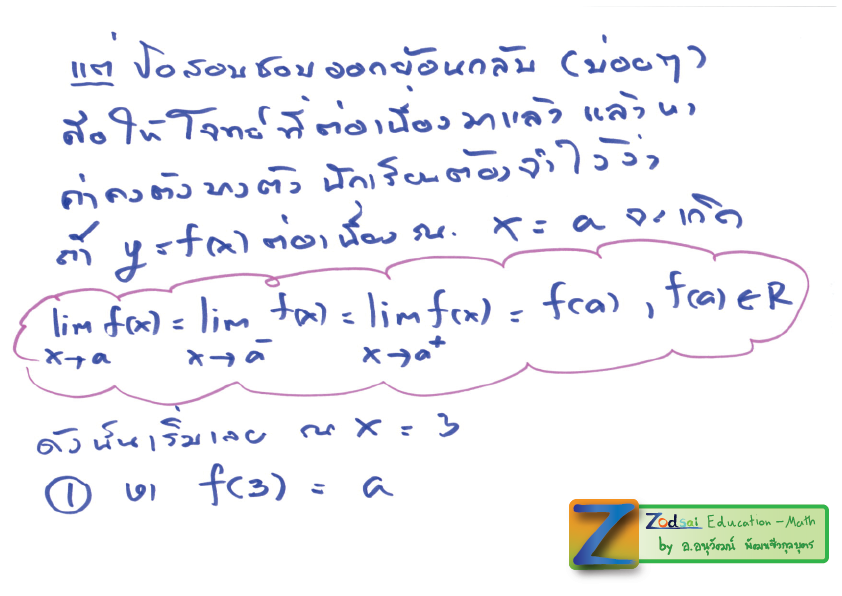 แต่ ข้อสอบชอบออกย้อนกลับ (บ่อยๆ)
คือให้โจทย์ที่ต่อเนื่องมาแล้ว แล้วหา
ค่าคงตัวบางตัว นักเรียนต้องจำไว้ว่า
ถ้า y = f(x) ต่อเนื่อง ณ. x = a จะเกิด
lim f(x) = lim f(x) = lim f(x) = f(a) , f(a) ∈ R
x→a x→a⁻ x→a⁺
ดังนั้นเริ่มเลย ณ x = 3
① หา f(3) = a
Z Zodsai Education - Math
by อ.อนุวัฒน์